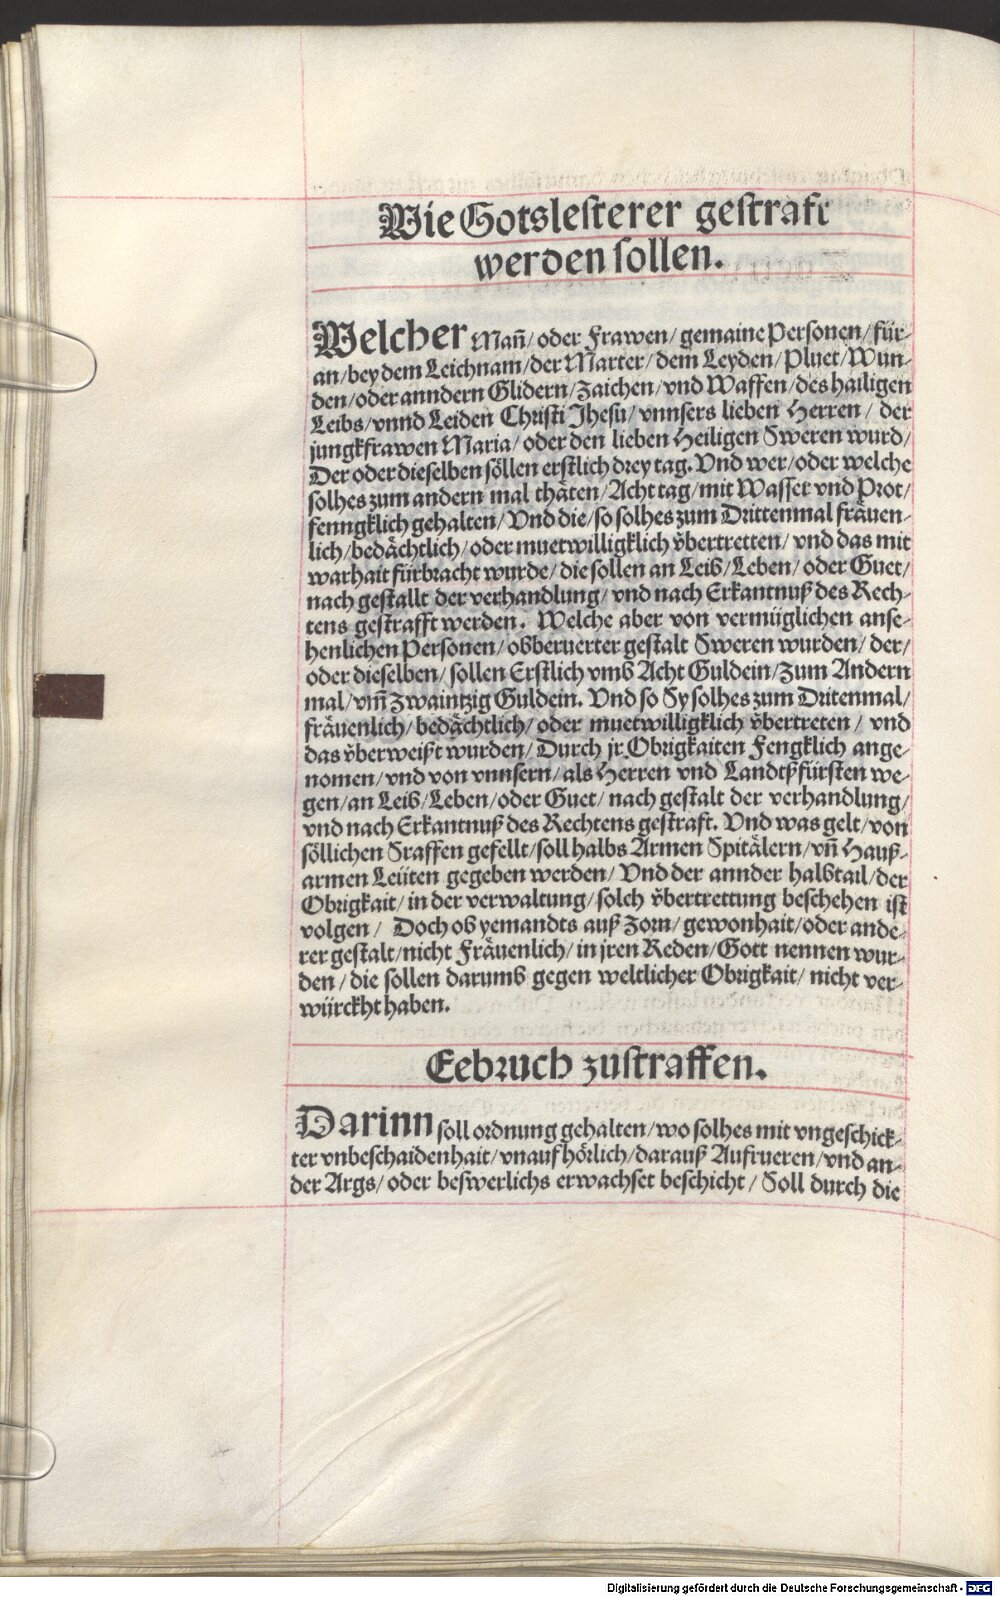 Wie Gotslesterer gestraft
werden sollen.
Welcher Man̄/ oder Frawen/ gemaine Personen/ für-
an/ bey dem Leichnam/ der Marter/ dem Leyden/ Pluet/ Wun-
den/ oder anndern Glidern/ Zaichen/ vnd Waffen/ des hailigen
Leibs/ vnnd Leiden Christi Jhesu/ vnnsers lieben Herren/ der
jungkfrawen Maria/ oder den lieben Heiligen Sweren wurd/
Der oder dieselben söllen erstlich drey tag. Vnd wer/ oder welche
solhes zum andern mal thäten/ Acht tag/ mit Wasser vnd Prot/
fenngklich gehalten/ Vnd die/ so solhes zum Drittenmal fräuen-
lich/ bedächtlich/ oder muetwilligklich v̈bertretten/ vnd das mit
warhait fürbracht wurde/ die sollen an Leib/ Leben/ oder Guet/
nach gestallt der verhandlung/ vnd nach Erkantnuß des Rech-
tens gestrafft werden. Welche aber von vermüglichen anse-
henlichen Personen/ obberuerter gestalt Sweren wurden/ der/
oder dieselben/ sollen Erstlich vmb Acht Guldein/ Zum Andern
mal/ vm̄ Zwaintzig Guldein. Vnd so Sy solhes zum Dritenmal/
fräuenlich/ bedächtlich/ oder muetwilligklich v̈bertreten/ vnd
das v̈berweißt wurden/ Durch jr Obrigkaiten Fengklich ange-
nomen/ vnd von vnnsern/ als Herren vnd Landtßfürsten we-
gen/ an Leib/ Leben/ oder Guet/ nach gestalt der verhandlung/
vnd nach Erkantnuß des Rechtens gestraft. Vnd was gelt/ von
söllichen Sraffen gefellt/ soll halbs Armen Spitälern/ vn̄ Hauß-
armen Leüten gegeben werden/ Vnd der annder halbtail/ der
Obrigkait/ in der verwaltung/ solch v̈bertrettung beschehen ist
volgen/ Doch ob yemandts auß Zorn/ gewonhait/ oder ande-
rer gestalt/ nicht Fräuenlich/ in jren Reden/ Gott nennen wur-
den/ die sollen darumb gegen weltlicher Obrigkait/ nicht ver-
würckht haben.
Eebruch zustraffen.
Darinn soll ordnung gehalten/ wo solhes mit vngeschick-
ter vnbeschaidenhait/ vnaufhörlich/ darauß Aufrueren/ vnd an-
der Args/ oder beswerlichs erwachset beschicht/ Soll durch die
Digitalisierung gefördert durch die Deutsche Forschungsgemeinschaft - DFG